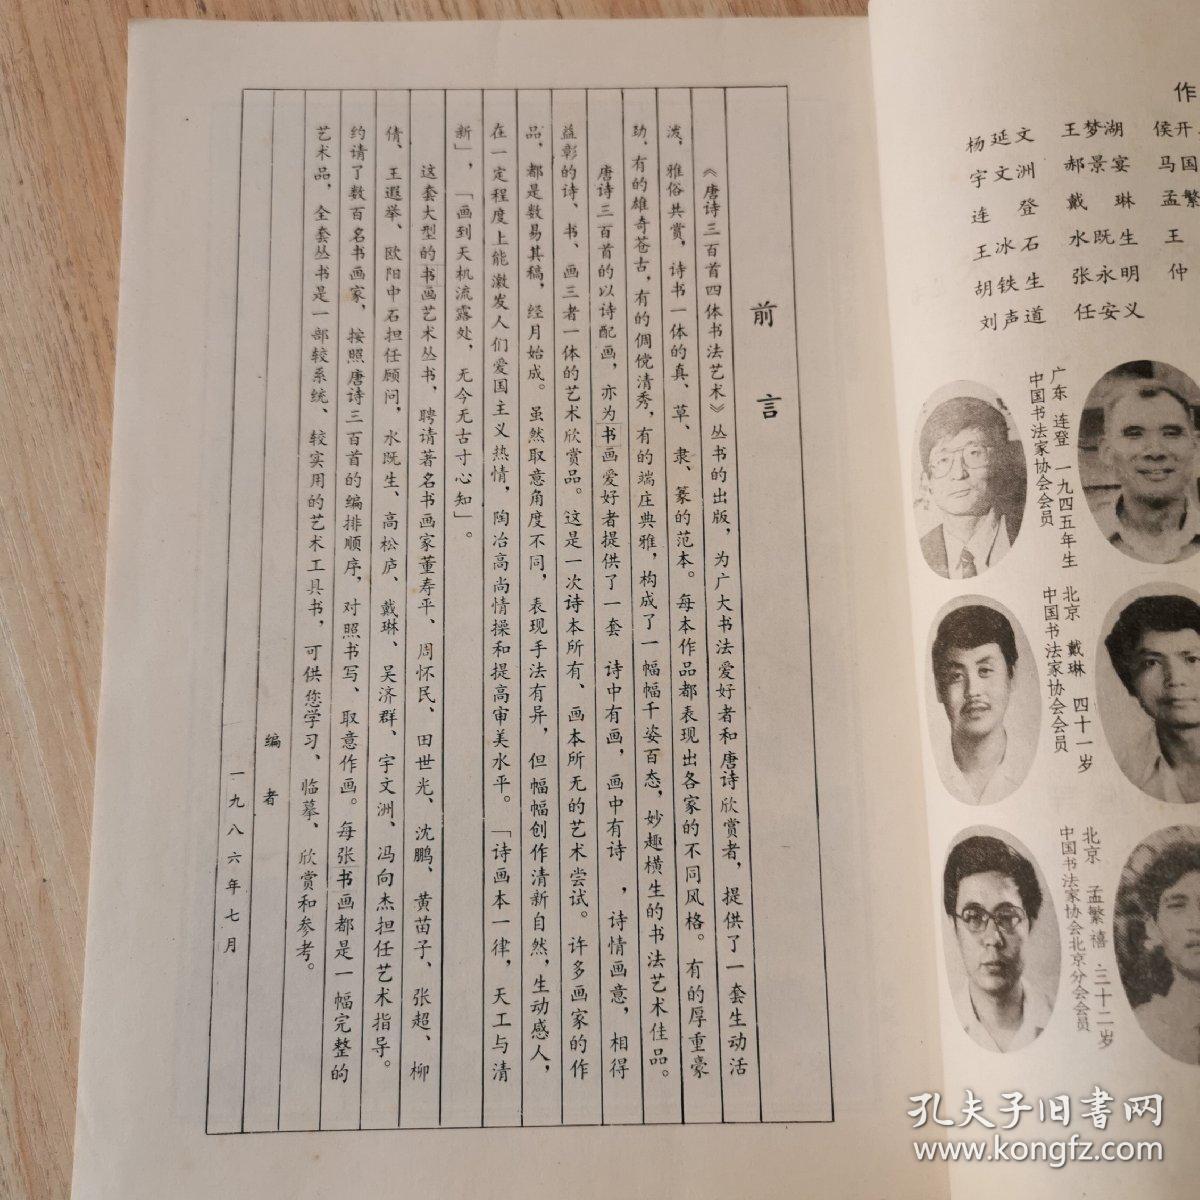 前言
《唐诗三百首四体书法艺术》丛书的出版，为广大书法爱好者和唐诗欣赏者，提供了一套生动活
泼，雅俗共赏，诗书一体的真、草、隶、篆的范本。每本作品都表现出各家的不同风格。有的厚重豪
劲、有的雄奇苍古，有的倜傥清秀，有的端庄典雅，构成了一幅幅千姿百态，妙趣横生的书法艺术佳品。
唐诗三百首的以诗配画，亦为书画爱好者提供了一套 诗中有画，画中有诗，诗情画意，相得
益彰的诗、书、画三者一体的艺术欣赏品。这是一次诗本所有、画本所无的艺术尝试。许多画家的作
品，都是数易其稿，经月始成。虽然取意角度不同，表现手法有异，但幅幅创作清新自然，生动感人，
在一定程度上能激发人们爱国主义热情，陶冶高尚情操和提高审美水平。「诗画本一律，天工与清
新」，「画到天机流露处，无今无古寸心知」。
这套大型的书画艺术丛书，聘请著名书画家董寿平、周怀民、田世光、沈鹏、黄苗子、张超、柳
倩、王遐举、欧阳中石担任顾问，水既生、高松庐、戴琳、吴济群、宇文洲、冯向杰担任艺术指导。
约请了数百名书画家，按照唐诗三百首的编排顺序，对照书写、取意作画。每张书画都是一幅完整的
艺术品，全套丛书是一部较系统、较实用的艺术工具书，可供您学习、临摹、欣赏和参考。
编者
一九八六年七月
作
杨延文 王梦湖 侯开
宇文洲 郝景宴 马国
连登 戴琳 孟繁
王冰石 水既生 王
胡铁生 张永明 仲
刘声道 任安义
广东 连登 一九四五年生
中国书法家协会会员
北京 戴琳 四十一岁
中国书法家协会会员
北京 孟繁禧 三十二岁
中国书法家协会北京分会会员
孔夫子旧书网
www.kongfz.com